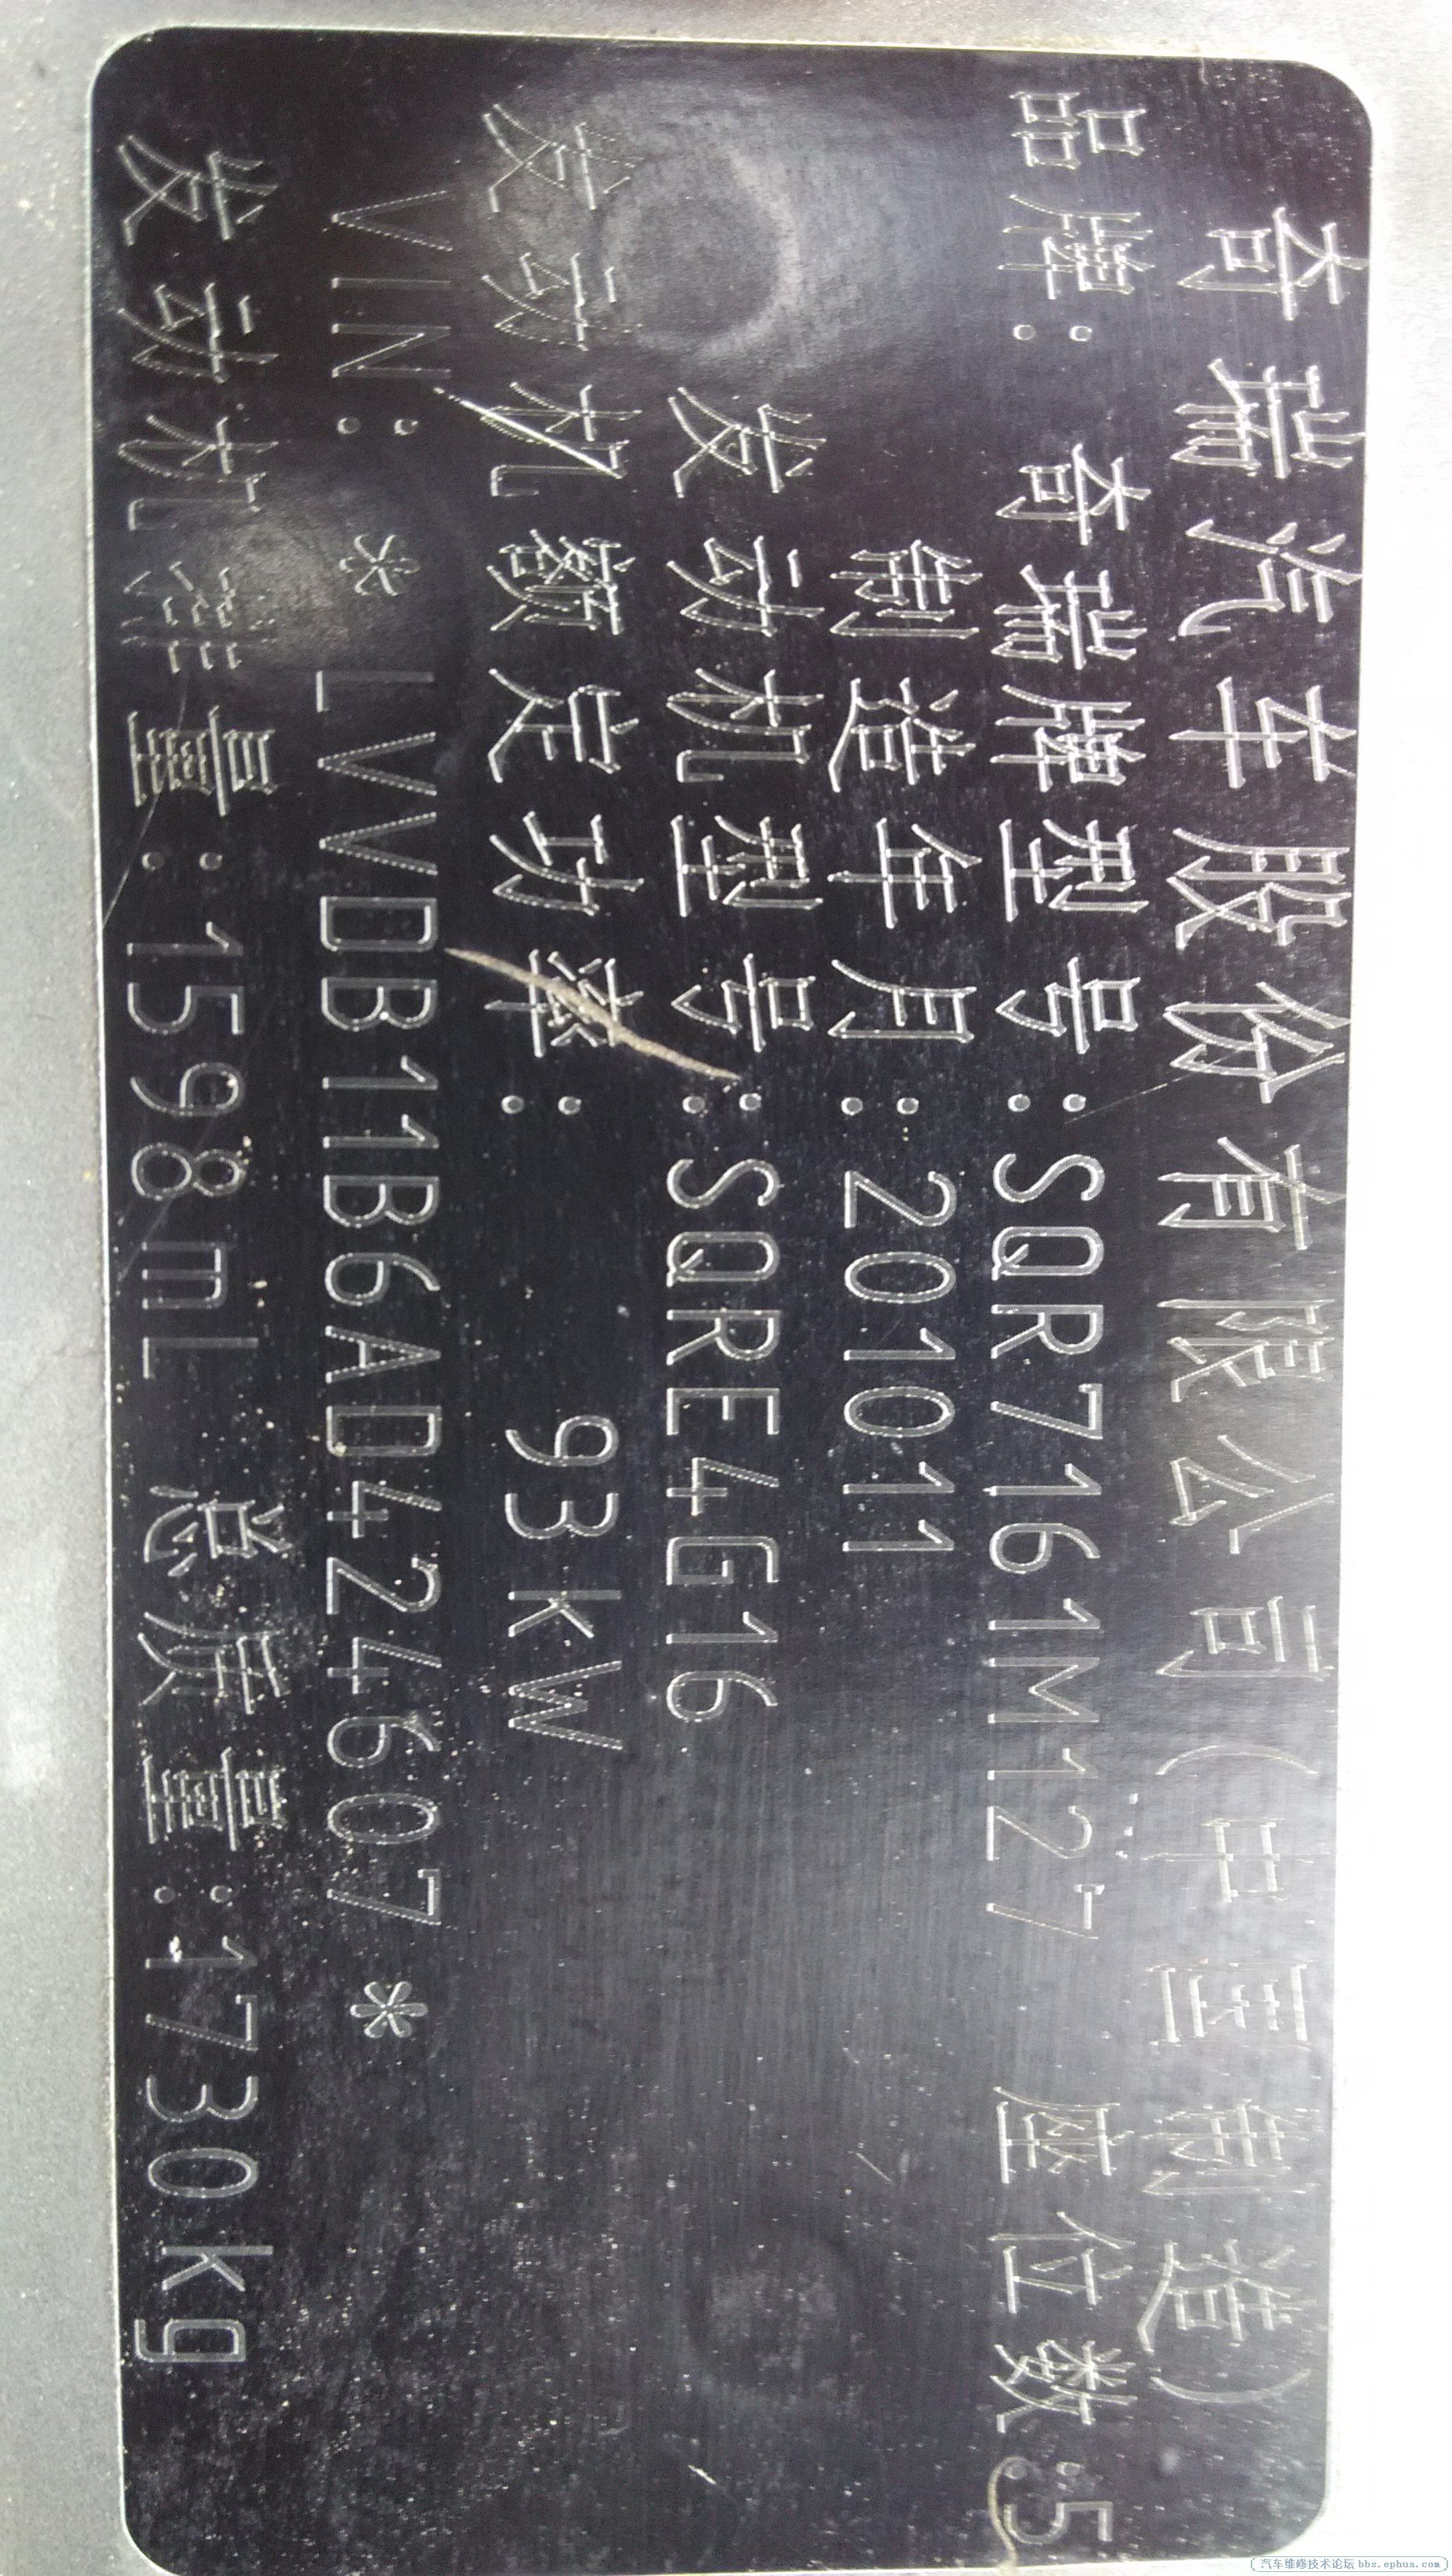 奇瑞汽车股份有限公司(中国制造)
品牌: 奇瑞牌型号:SQR7161M127 座位数:5
制造年月:201011
发动机型号:SQRE4G16
发动机额定功率: 93kW
VIN: *LVVDB11B6AD424607*
发动机排量:1598mL 总质量:1730kg
汽车维修技术论坛 bbs.ephua.com